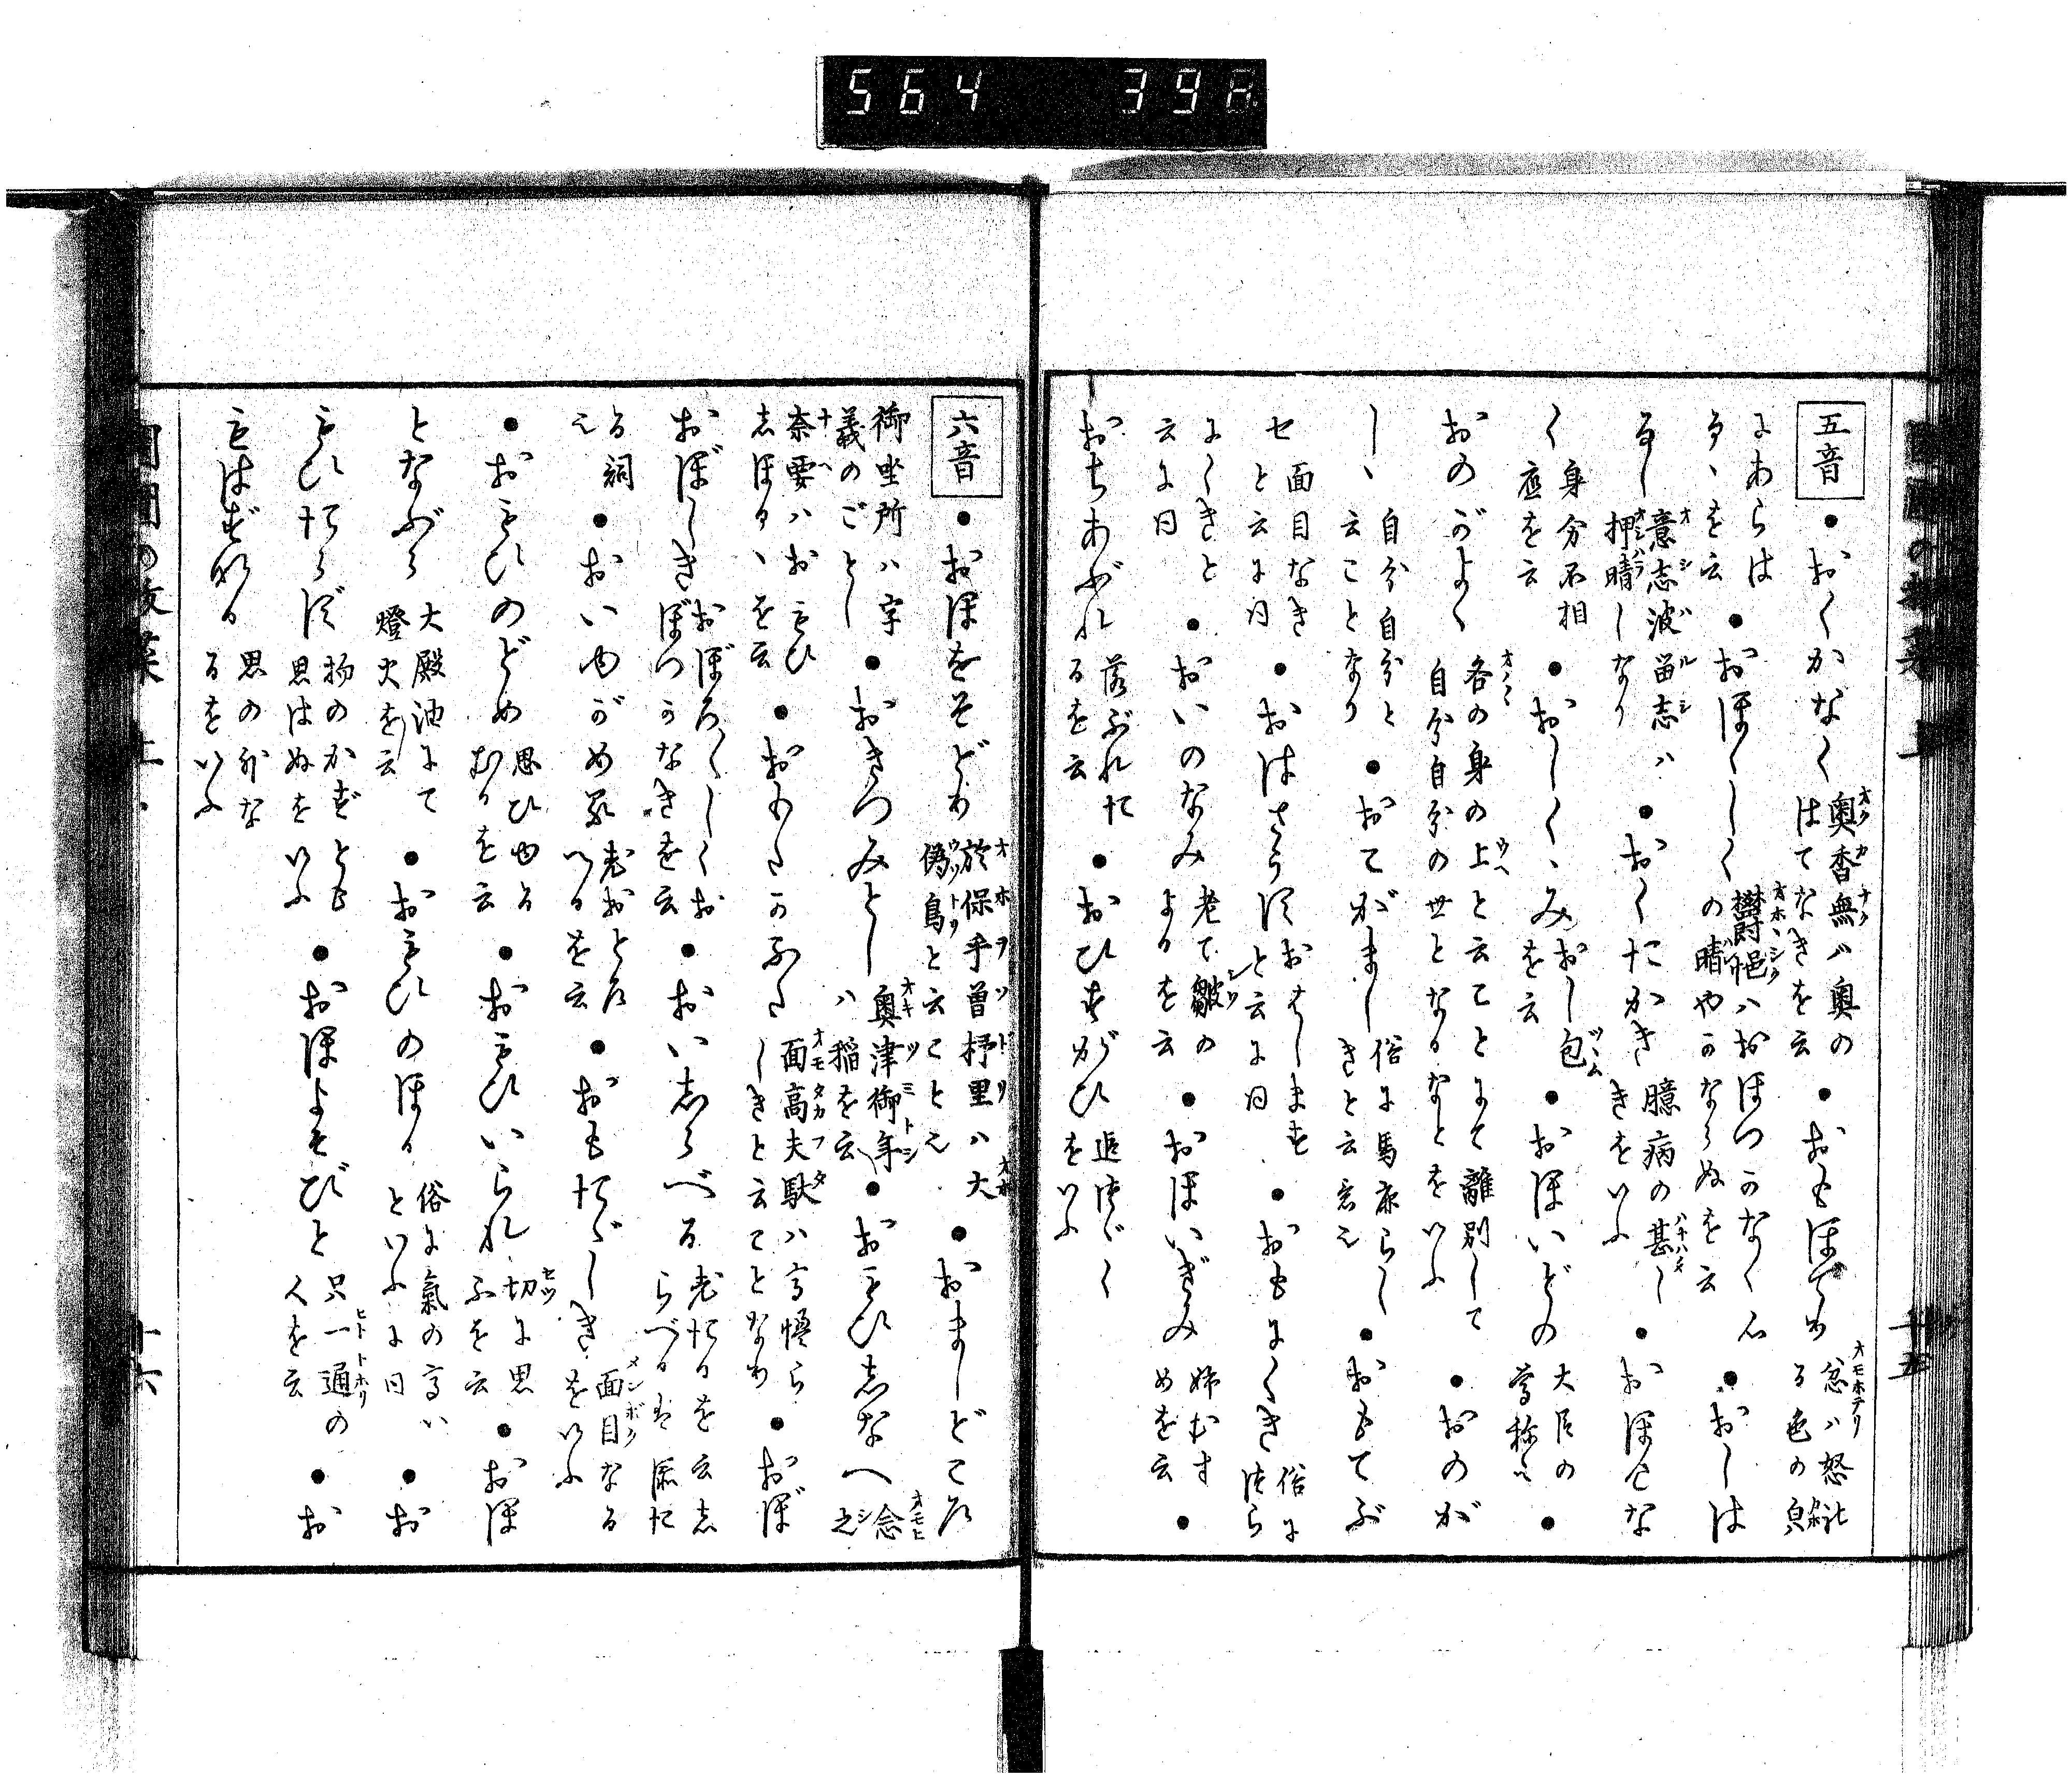 564 39
五音
●おくかなく 奥香無ハ奥の
はてなきを云 ●おもほてり 忿ハ怒
る色の
にあらは
るゝを云 ●おほゝしく 欝悒ハおほつかなく
の晴やかならぬを云 ●おしは
るし 意志波留志ハ
押晴しなり ●おくたかき 臆病の甚し
きをいふ ●おほけな
く 身分不相
應を云 ●おしくゝみ おし包
を云 ●おほいどの 大臣の
尊称 ●
おのがよゝ 各の身の上と云ことにて離別して
自分自分の世となるなどをいふ ●おのが
しゝ 自分自分と
云ことなり ●おてがまし 俗に馬鹿らし
きと云意 ●おもてぶ
せ 面目なき
と云に同 ●おはさうず おはします
と云に同 ●おもにくき 俗に
つら
にくきと
云に同 ●おいのなみ 老て皺の
よるを云 ●おほいぎみ 姉むす
めを云 ●
おちあぶれ 落ぶれた
るを云 ●おひすがひ 追つゞく
をいふ
六音
●おほをそどり 於保乎曽杼里ハ大
偽鳥と云こと ●おましどころ
御坐所ハ字
義のごとし ●おきつみとし 奥津御年
ハ稲を云 ●おもひしなへ 念之
奈要ハおもひ
しほるゝを云 ●おもたかふた 面高夫駄ハ
しきと云ことなり ●おぼ
おぼしき おぼろくしくお
ぼつかなきを云 ●おいしらべる 老たるを云し
らべるは添た
る詞 ●おいゆがめる 老おとろ
へるを云 ●おもだゝしき 面目なる
をいふ
●おもひのどめ 思ひゆる
むるを云 ●おもひいられ 切に思
ふを云 ●おほ
となぶら 大殿油にて
燈火を云 ●おもひのほる 俗に氣の高い
といふに同 ●お
もひたらず 物のかずとも
思はぬをいふ ●おほよそびと 只一通の
人を云 ●お
もはずなる 思の外な
るをいふ
十六